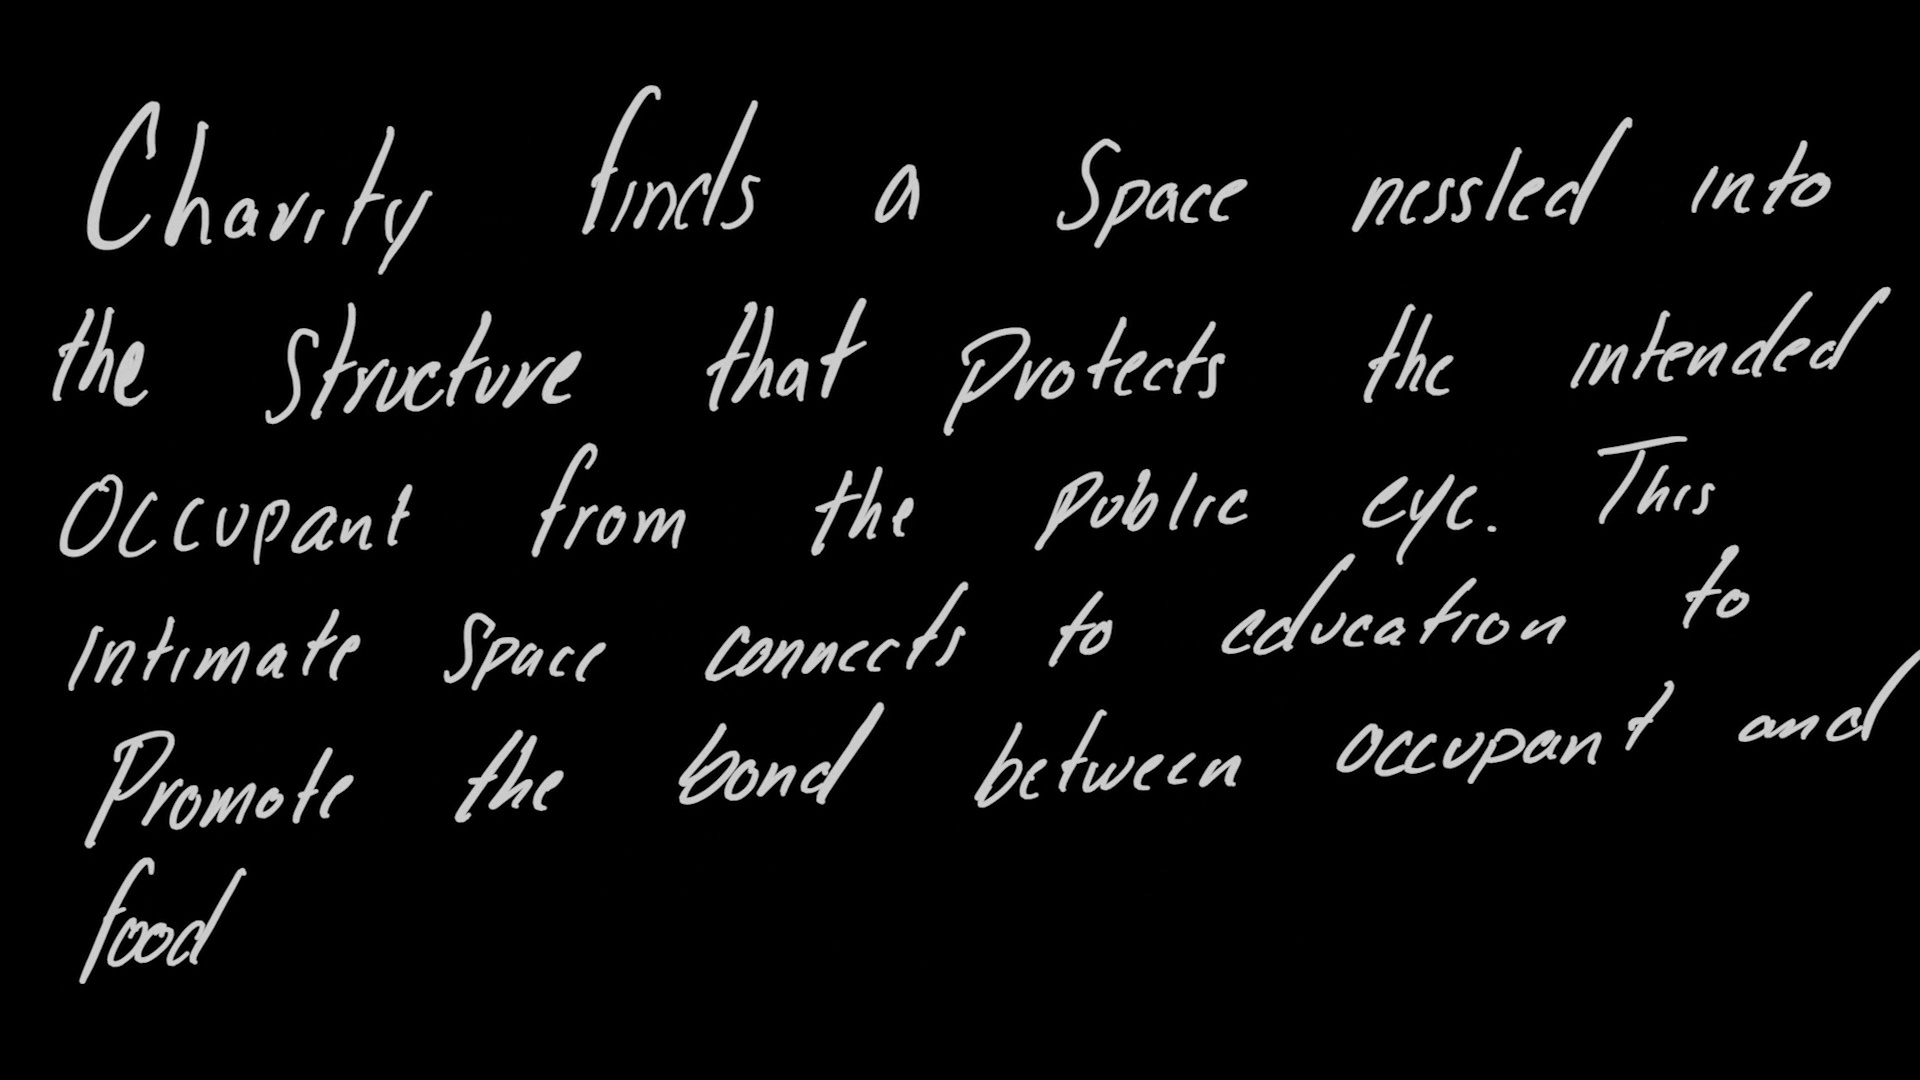 Charity finds a Space nessled into
the Structure that protects the intended
Occupant from the public eye. This
intimate Space connects to education to
Promote the bond between occupant and
food